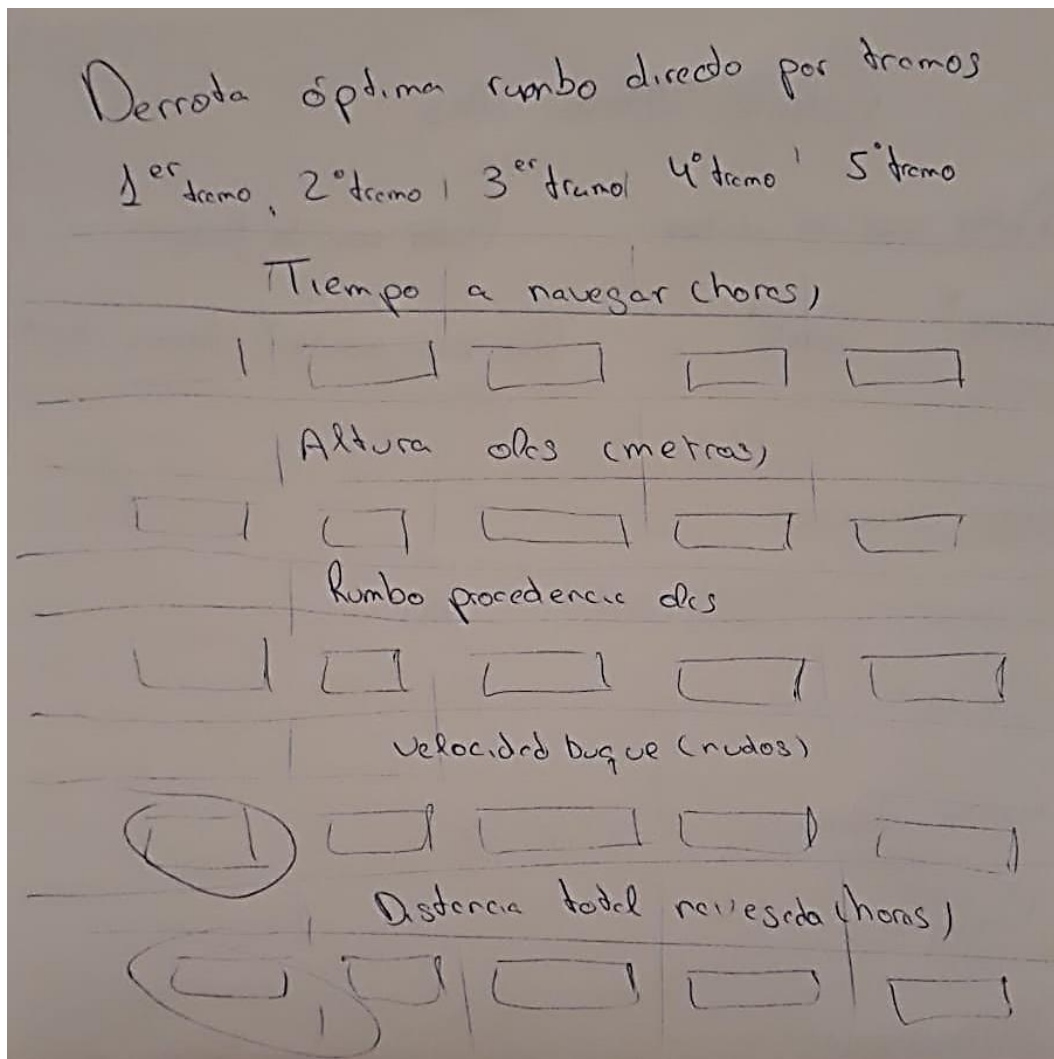 Derrota óptima rumbo directo por tramos
1er tramo, 2º tramo, 3er tramo, 4º tramo, 5º tramo
Tiempo a navegar (horas)
Altura olas (metros)
Rumbo procedencia olas
Velocidad buque (nudos)
Distancia total navegada (horas)